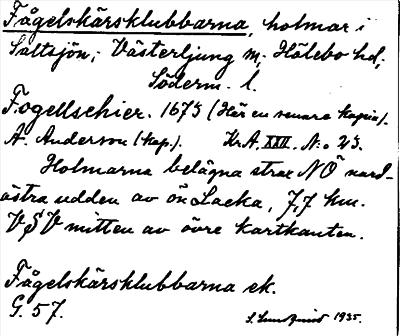 Fågelskärsklubbarna, holmar i
Saltsjön; Västerljung sn; Hölebo hd;
Söderm. l.
Fogellschier. 1675 (Här en senare kopia).
A. Anderson (kop.). Kr. A. XXII. N:o 23.
Holmarna belägna strax NÖ nord-
östra udden av ön Lacka, 7,7 km.
VSV mitten av övre kartkanten.
Fågelskärsklubbarna ek.
G. 57.
S. Lundquist 1935.